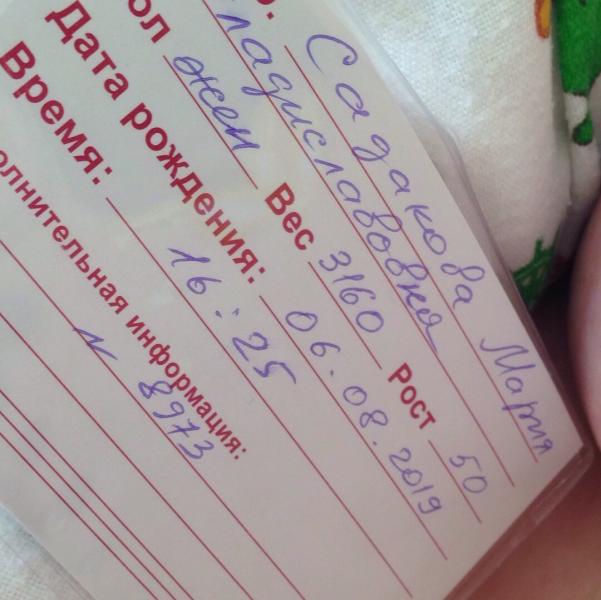 Садакова Мария
ладиславовна
ол жен Вес 3160 Рост 50
Дата рождения: 06.08.2019
Время: 16:25
олнительная информация:
N 8973